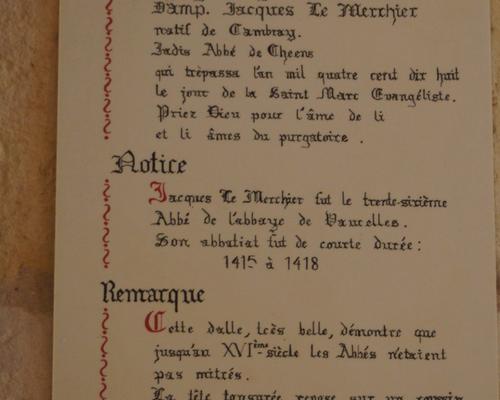 Damp. Jacques Le Merchier
natif de Cambray.
Jadis Abbé de Cheens
qui trépassa l'an mil quatre cent dix huit
le jour de la Saint Marc Evangéliste.
Priez Dieu pour l'âme de li
et li âmes du purgatoire.
Notice
Jacques Le Merchier fut le trente-sixième
Abbé de l'abbaye de Vaucelles.
Son abbatiat fut de courte durée :
1415 à 1418
Remarque
Cette dalle, très belle, démontre que
jusqu'au XVIème siècle les Abbés n'étaient
pas mitrés.
La tête tonsurée repose sur un coussin